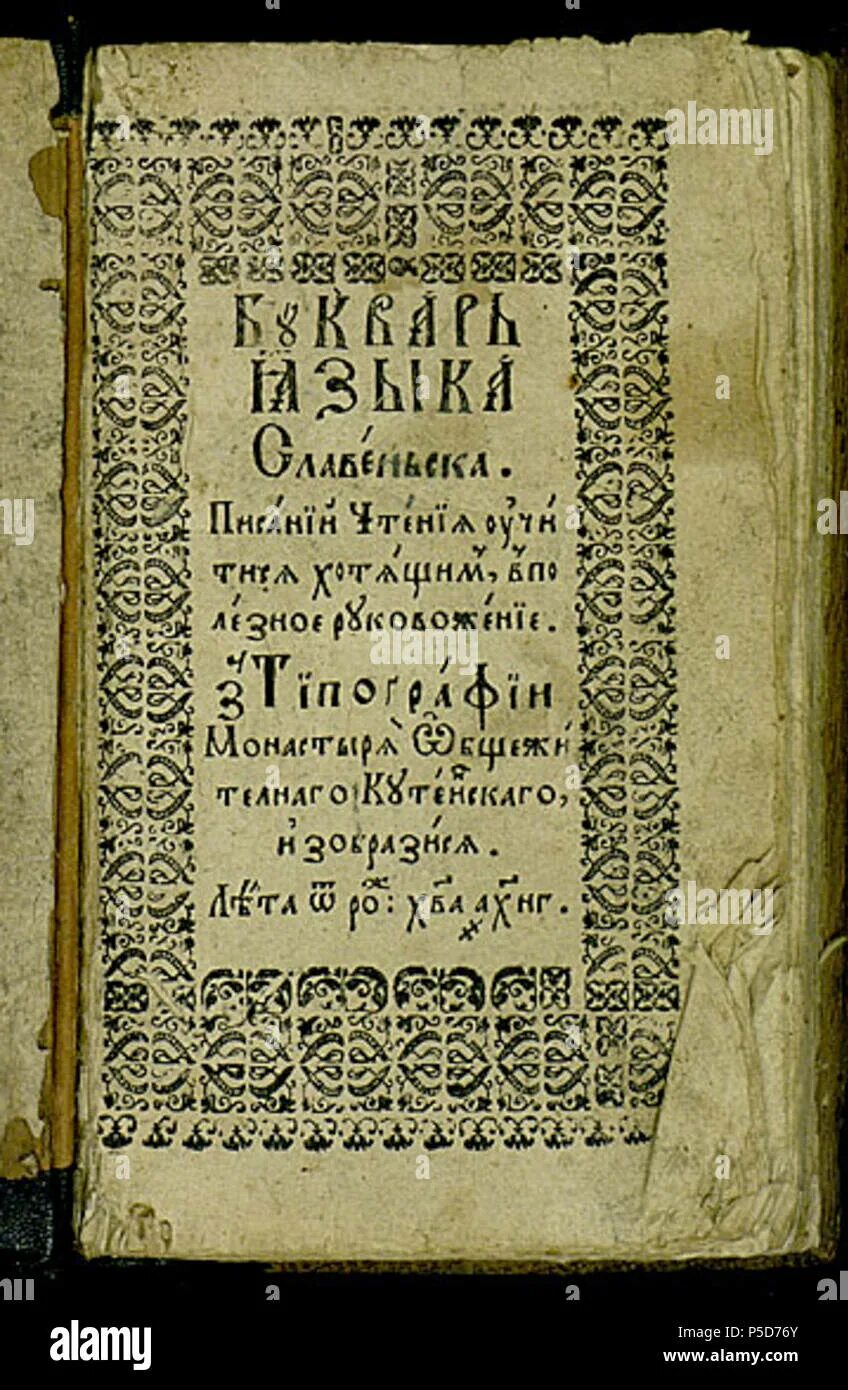 Бꙋква́рь
Ꙗзы́ка
Славе́ньска.
Писа́нїй Чте́нїѧ оу҆чи́
тисѧ хотѧ́щим̾, в̾по
ле́зное рꙋковоже́нїе.
з̾ Тїпоґра́фїи
Монастырѧ̀ Ѡ҆бщежи́
телнаго Кꙋте́инскаго,
и҆зобрази́сѧ.
Лѣ́та ѿ рож: хв҃а ҂ахн҃г.
alamy
Image ID: P5D76Y
www.alamy.com